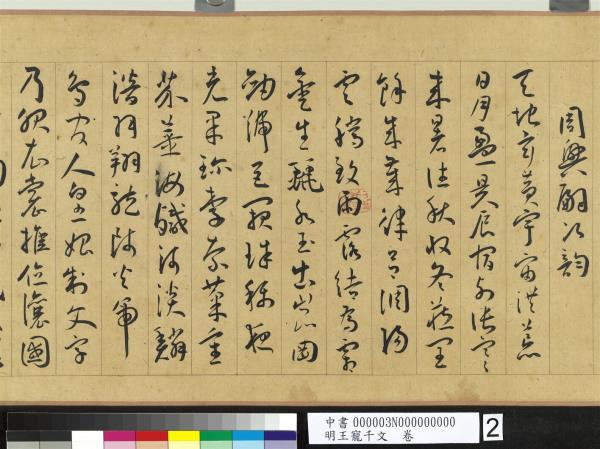 周興嗣次韻
天地玄黃宇宙洪荒
日月盈昃辰宿列張寒
來暑往秋收冬藏閏
餘成歲律呂調陽
雲騰致雨露結為霜
金生麗水玉出崑岡
劍號巨闕珠稱夜
光果珍李柰菜重
芥薑海鹹河淡鱗
潛羽翔龍師火帝
鳥官人皇始制文字
乃服衣裳推位讓國
中書 000003N000000000
明王寵千文 卷
2